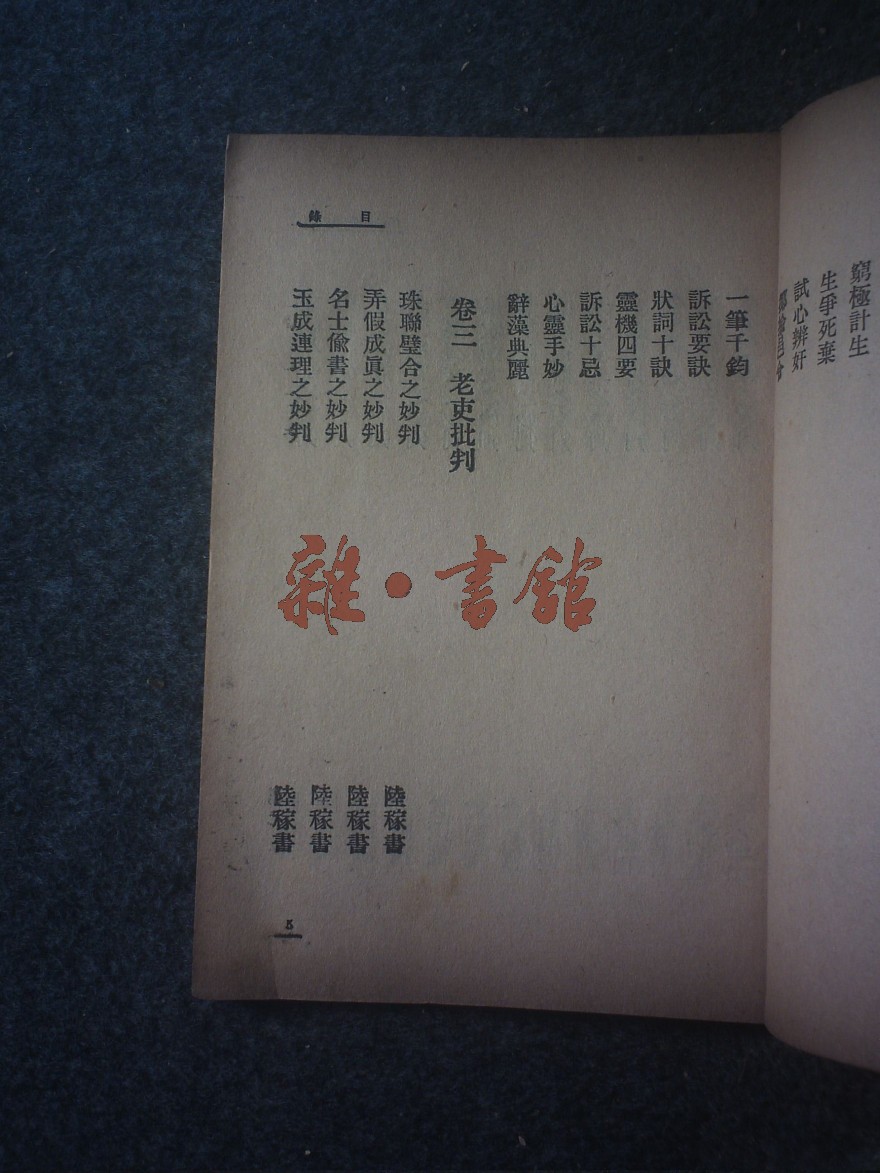 窮極計生
生爭死棄
試心辨奸
目錄
一筆千鈞
訴訟要訣
狀詞十訣
靈機四要
訴訟十忌
心靈手妙
辭藻典麗
卷三 老吏批判
珠聯璧合之妙判 陸稼書
弄假成眞之妙判 陸稼書
名士偸書之妙判 陸稼書
玉成連理之妙判 陸稼書
5
雜·書館